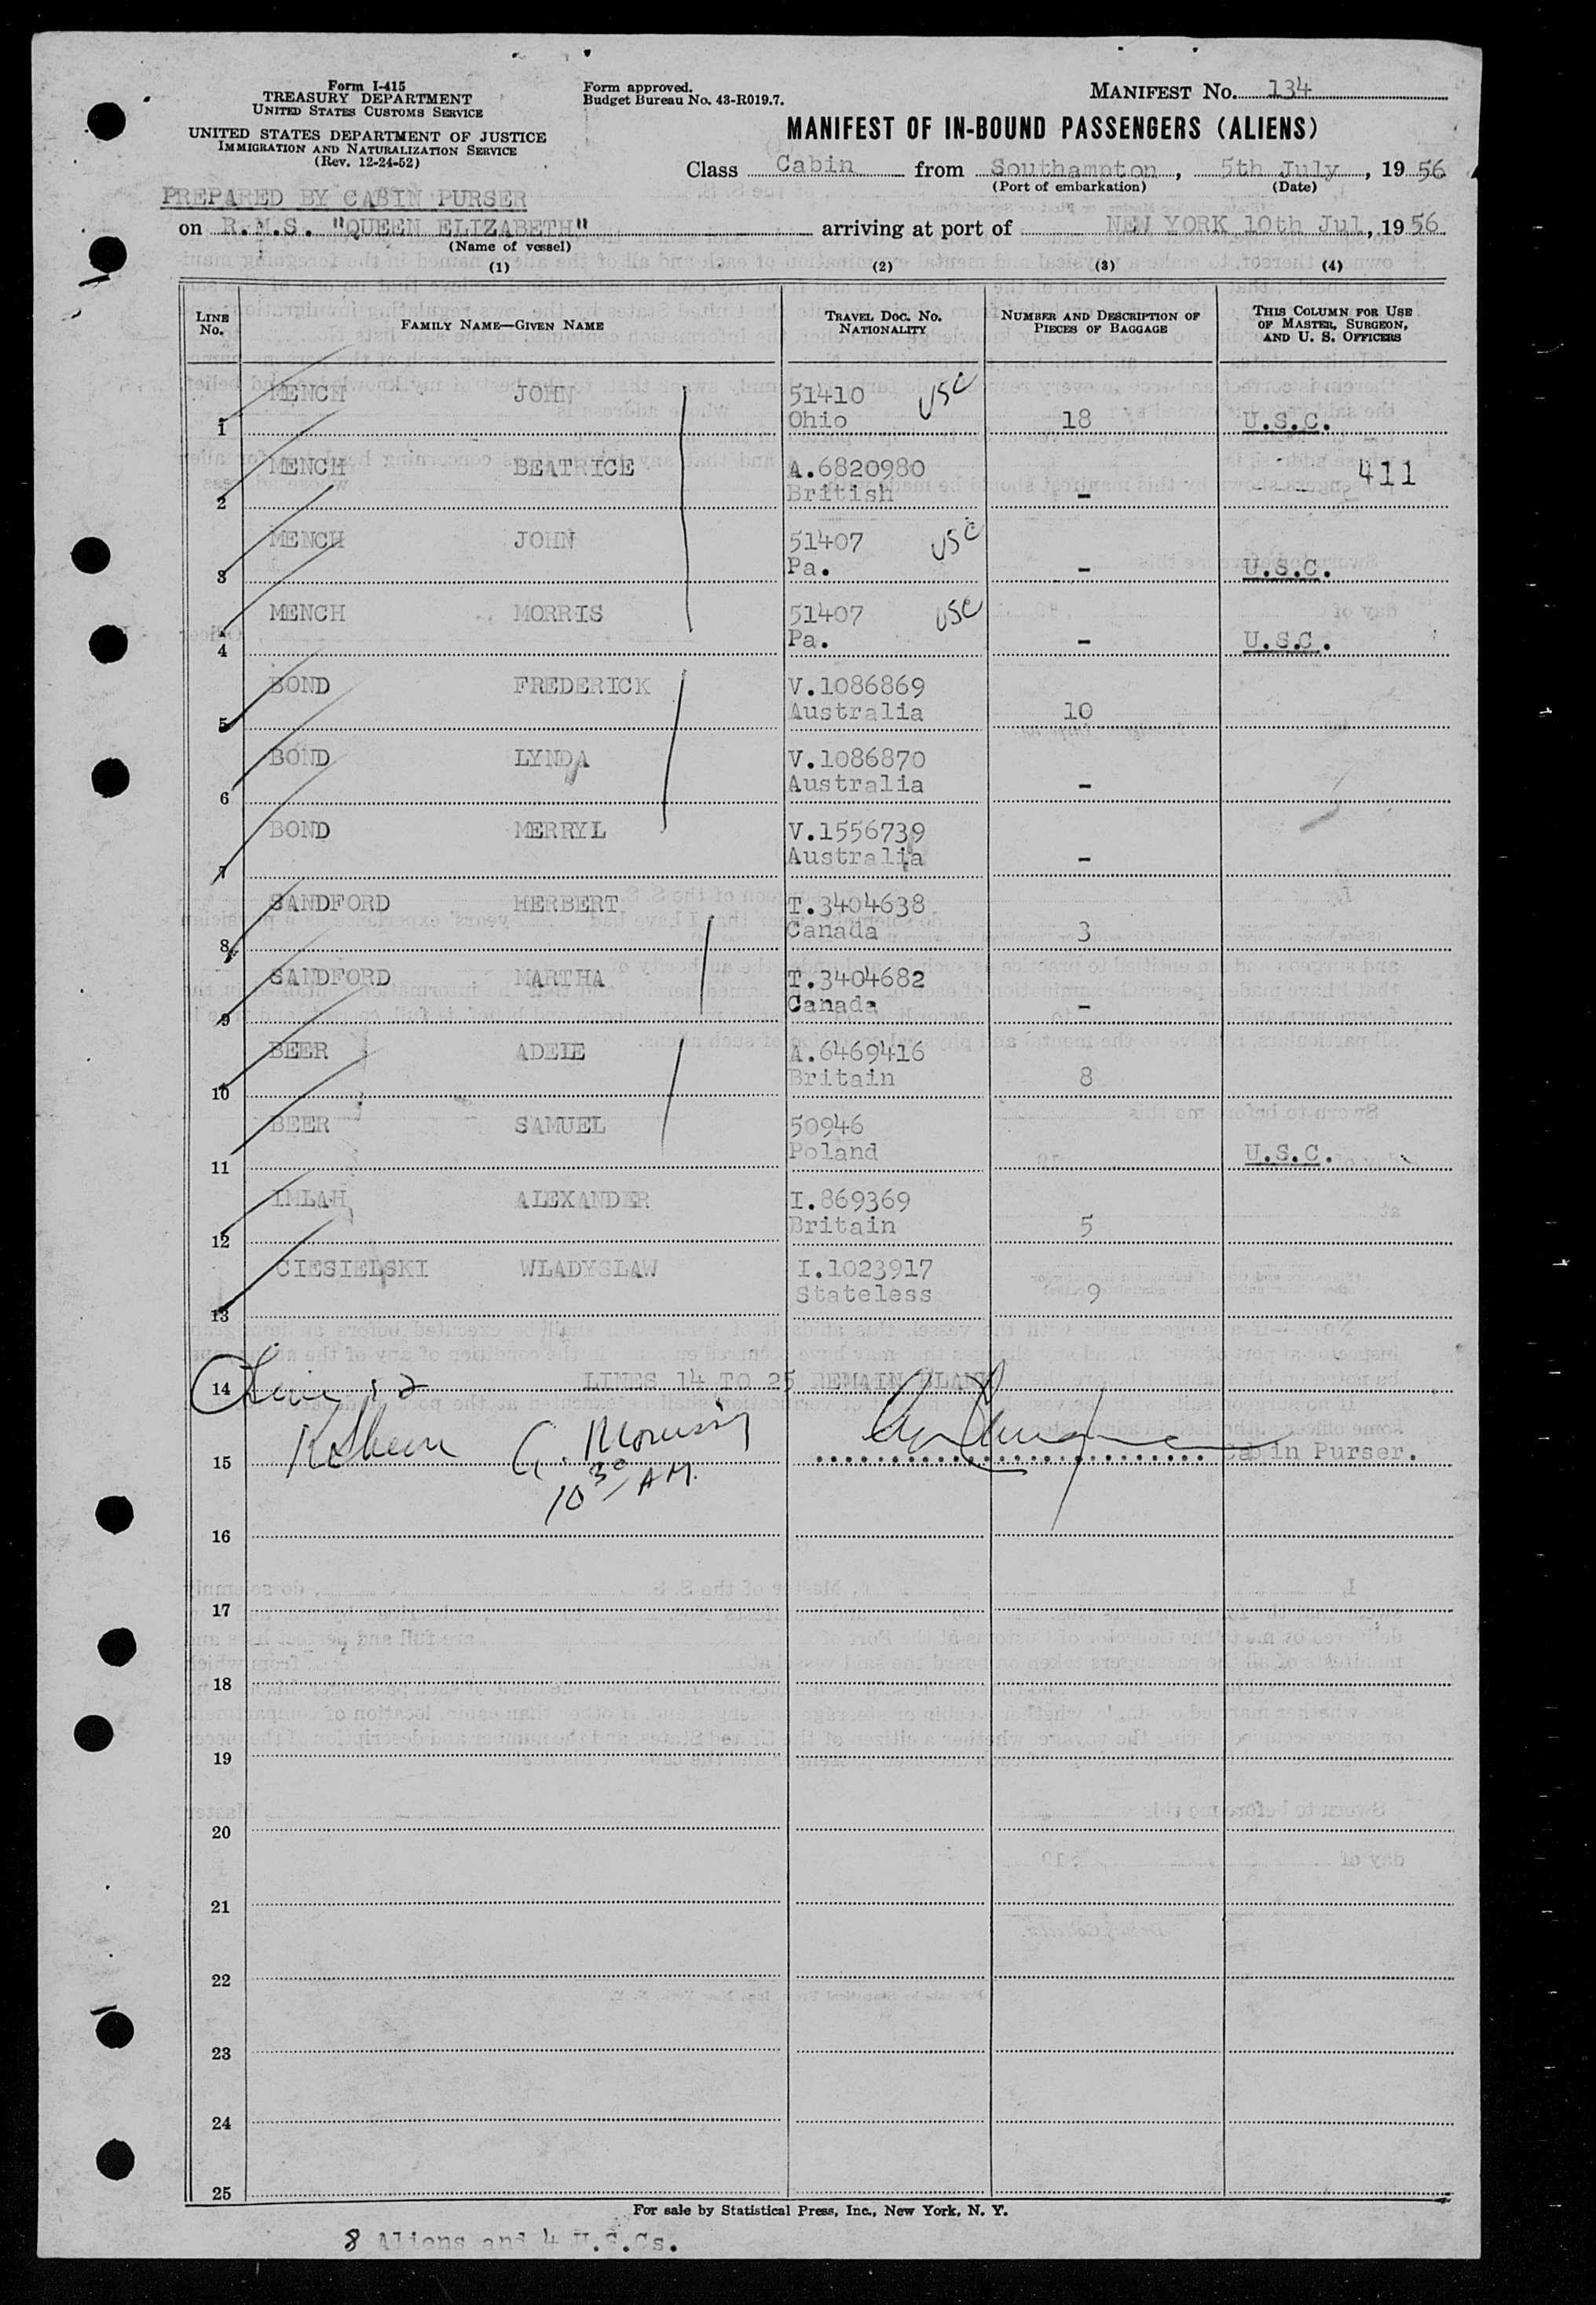 Form I-415
TREASURY DEPARTMENT
UNITED STATES CUSTOMS SERVICE
UNITED STATES DEPARTMENT OF JUSTICE
IMMIGRATION AND NATURALIZATION SERVICE
(Rev. 12-24-52)
Form approved.
Budget Bureau No. 43-R019.7.
MANIFEST No. 134
MANIFEST OF IN-BOUND PASSENGERS (ALIENS)
Class Cabin from Southampton, 5th July, 1956
(Port of embarkation) (Date)
PREPARED BY CABIN PURSER
on R.M.S. "QUEEN ELIZABETH" arriving at port of NEW YORK 10th Jul, 1956
(Name of vessel)
(1) (2) (3) (4)
LINE No. FAMILY NAME—GIVEN NAME TRAVEL DOC. No. NATIONALITY NUMBER AND DESCRIPTION OF PIECES OF BAGGAGE THIS COLUMN FOR USE OF MASTER, SURGEON, AND U. S. OFFICERS
MENCH JOHN 51410 USC
1 Ohio 18 U.S.C.
MENCH BEATRICE A.6820980 411
2 British -
MENCH JOHN 51407 USC
3 Pa. - U.S.C.
MENCH MORRIS 51407 USC
4 Pa. - U.S.C.
BOND FREDERICK V.1086869
5 Australia 10
BOND LYNDA V.1086870
6 Australia -
BOND MERRYL V.1556739
7 Australia -
SANDFORD HERBERT T.3404638
8 Canada 3
SANDFORD MARTHA T.3404682
9 Canada -
BEER ADELE A.6469416
10 Britain 8
BEER SAMUEL 50946
11 Poland U.S.C.
IMLAH ALEXANDER I.869369
12 Britain 5
CIESIELSKI WLADYSLAW I.1023917
13 Stateless 9
14 LINES 14 TO 25 REMAIN BLANK
15 G. Morrissy Cabin Purser.
10 30 AM.
16
17
18
19
20
21
22
23
24
25
For sale by Statistical Press, Inc., New York, N. Y.
8 Aliens and 4 U.S.Cs.